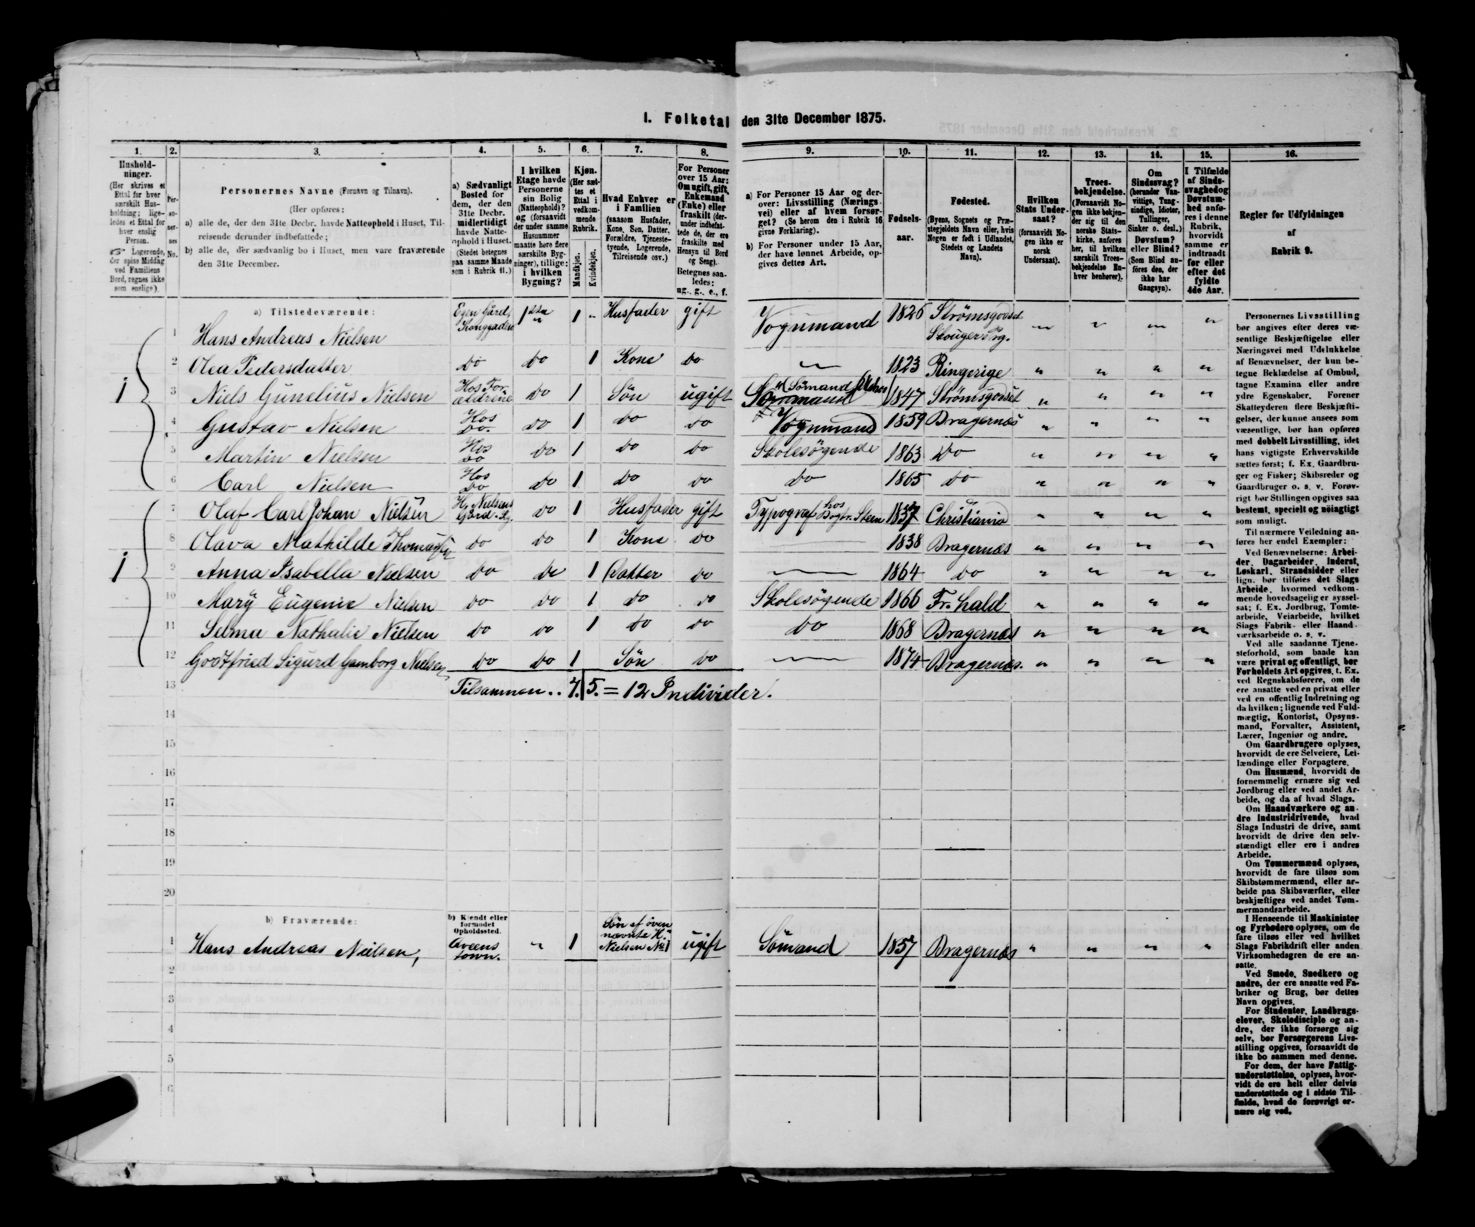 I. Folketal den 31te December 1875.
1. 2. 3. 4. 5. 6. 7. 8. 9. 10. 11. 12. 13. 14. 15. 16.
Husholdninger.
(Her skrives et Ettal for hver særskilt Husholdning; ligeledes et Ettal for hver enslig Person.
☞ Logerende, der spise Middag ved Familiens Bord, regnes ikke som enslige).
Personernes No.
Personernes Navne (Fornavn og Tilnavn).
(Her opføres:
a) alle de, der den 31te Decbr. havde Natteophold i Huset, Tilreisende derunder indbefattede;
b) alle de, der sædvanlig bo i Huset, men vare fraværende den 31te December.
a) Sædvanligt Bosted for dem, der den 31te Decbr. midlertidigt havde Natteophold i Huset. (Stedet betegnes paa samme Maade som i Rubrik 11.)
I hvilken Etage havde Personerne sin Bolig (Natteophold)? og (forsaavidt der under samme Husnummer maatte høre flere særskilte Bygninger), tillige: i hvilken Bygning?
Kjøn. (Her sættes et Ettal i vedkommende Rubrik.
Mandkjøn. Kvindekjøn.
Hvad Enhver er i Familien
(saasom Husfader, Kone, Søn, Datter, Forældre, Tjenestetyende, Logerende, Tilreisende osv.)
For Personer over 15 Aar: Om ugift, gift, Enkemand (Enke) eller fraskilt (derunder indbefattede de, der ere fraskilte med Hensyn til Bord og Seng). Betegnes saaledes: ug., g., e., f.
a) For Personer 15 Aar og derover: Livsstilling (Næringsvei) eller af hvem forsørget? (Se herom den i Rubrik 16 givne Forklaring).
b) For Personer under 15 Aar, der have lønnet Arbeide, opgives dettes Art.
Fødselsaar.
Fødested.
(Byens, Sognets og Præstegjeldets Navn eller, hvis Nogen er født i Udlandet, Stedets og Landets Navn).
Hvilken Stats Undersaat?
(forsaavidt Nogen ikke er norsk Undersaat).
Troesbekjendelse.
(Forsaavidt Nogen ikke bekjender sig til den norske Statskirke, anføres her, til hvilken særskilt Troesbekjendelse Enhver henhører).
Om Sindssvag? (herunder Vanvittige, Tungsindige, Idioter, Tullinger, Sinker o. desl.) Døvstum? eller Blind? (Som Blind anføres den, der ikke har Gangsyn).
I Tilfælde af Sindssvaghed og Døvstumhed anføres i denne Rubrik, hvorvidt samme er indtraadt før eller efter det fyldte 4de Aar.
Regler for Udfyldningen
af
Rubrik 9.
a) Tilstedeværende:
1 Hans Andreas Nielsen Egen Gård, 1ste " 1 " Husfader gift Vognmand 1826 Strømsgodset " " " "
2 Olea Pedersdatter do do 1 Kone do " 1823 Ringerige " " " "
1 3 Niels Gunelius Nielsen Hos Forældrene do 1 Søn ugift Sømand 1847 Strømsgodset " " " "
4 Gustav Nielsen Hos Do. do 1 do do Vognmand 1859 Bragernæs " " " "
5 Martin Nielsen Hos do do 1 do do Skolesøgende 1863 do " " " "
6 Carl Nielsen Hos do do 1 do do do 1865 do " " " "
7 Oluf Carl Johan Nielsen H. Nielsens Gård do 1 Husfader gift Typograf hos Steen 1837 Christiania " " " "
8 Olava Mathilde do do 1 Kone do 1838 Bragernæs " " " "
1 9 Anna Isabella Nielsen do do 1 Datter do 1864 do " " " "
10 Mary Eugenie Nielsen do do 1 do do Skolesøgende 1866 Fr. hald " " " "
11 Selma Nathalie Nielsen do do 1 do do do 1868 Bragernæs " " " "
12 Godtfried Sigurd Gamborg Nielsen do do 1 Søn do 1874 Bragernæs. " " " "
13 Tilsammen .. 7. 5. = 12 Individer.
14
15
16
17
18
19
20
b) Fraværende:
b) Kjendt eller formodet Opholdssted.
1 Hans Andreas Nielsen, Qveens town. " 1 Søn af øvennævnte H. Nielsen No 1 ugift Sømand 1857 Bragernæs " " " "
2
3
4
5
6
Personernes Livsstilling bør angives efter deres væsentlige Beskjæftigelse eller Næringsvei med Udelukkelse af Benævnelser, der kun betegne Beklædelse af Ombud, tagne Examina eller andre ydre Egenskaber. Forener Skatteyderen flere Beskjæftigelser, der kunne ansees som væsentlige, bør han opføres med dobbelt Livsstilling, idet hans vigtigste Erhvervskilde sættes først; f. Ex. Gaardbruger og Fisker; Skibsreder og Gaardbruger o. s. v. Forøvrigt bør Stillingen opgives saa bestemt, specielt og nøiagtigt som muligt.
Til nærmere Veiledning anføres her endel Exempler:
Ved Benævnelserne: Arbeider, Dagarbeider, Inderst, Løskarl, Strandsidder eller lign. bør tilføies det Slags Arbeide, hvormed vedkommende hovedsagelig er sysselsat; f. Ex. Jordbrug, Tomtearbeide, Veiarbeide, hvilket Slags Fabrik- eller Haandværksarbeide o. s. v.
Ved alle saadanne Tjenesteforhold, som baade kan være privat og offentligt, bør Forholdets Art opgives, t. Ex. ved Regnskabsførere, om de ere ansatte ved en privat eller ved en offentlig Indretning og da hvilken; lignende ved Fuldmægtig, Kontorist, Opsynsmand, Forvalter, Assistent, Lærer, Ingeniør og andre.
Om Gaardbrugere oplyses, hvorvidt de ere Selveiere, Leilændinge eller Forpagtere.
Om Husmænd, hvorvidt de fornemmelig ernære sig ved Jordbrug eller ved andet Arbeide, og da af hvad Slags.
Om Haandværkere og andre Industridrivende, hvad Slags Industri de drive, samt hvorvidt de drive den selvstændigt eller ere i andres Arbeide.
Om Tømmermænd oplyses, hvorvidt de fare tilsøs som Skibstømmermænd, eller arbeide paa Skibsværfter, eller beskjæftiges ved andet Tømmermandsarbeide.
I Henseende til Maskinister og Fyrbødere oplyses, om de fare tilsøs eller ved hvilket Slags Fabrikdrift eller anden Virksomhedsgren de ere ansatte.
Ved Smede, Snedkere og andre, der ere ansatte ved Fabriker og Brug, bør dettes Navn opgives.
For Studenter, Landbrugselever, Skoledisciple og andre, der ikke forsørge sig selv, bør Forsørgerens Livsstilling opgives, forsaavidt de ikke bo sammen med denne.
For dem, der have Fattigunderstøttelse, oplyses, hvorvidt de ere helt eller delvis understøttede og i sidste Tilfælde, hvad de forøvrigt ernære sig ved.